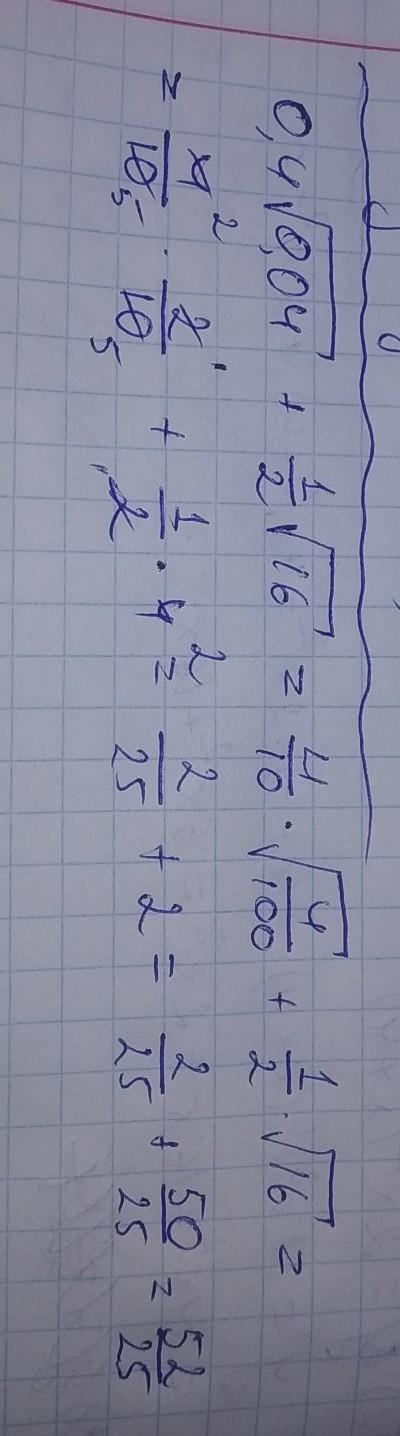 0,4√0,04 + 1/2√16 = 4/10 · √4/100 + 1/2 · √16 =
= 4 2/10 5 · 2/10 5 + 1/2 · 4 2 = 2/25 + 2 = 2/25 + 50/25 = 52/25